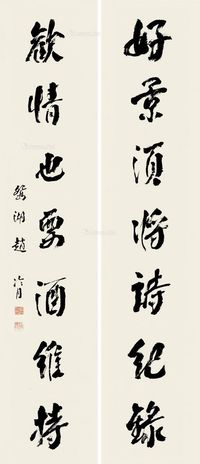 好景須將詩紀錄
歡情也要酒維持
鴛湖趙泠月